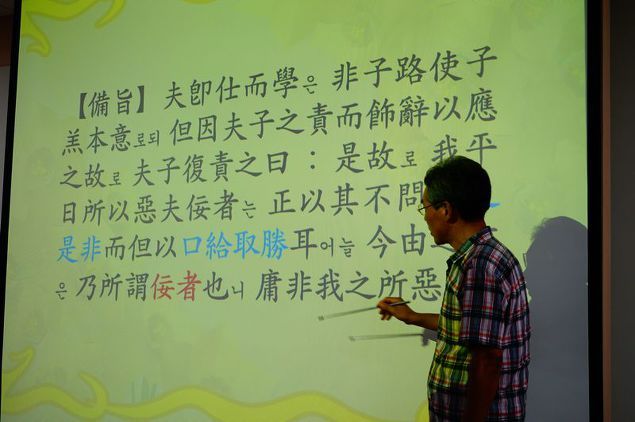 【備旨】 夫卽仕而學은 非子路使子
羔本意로되 但因夫子之責而飾辭以應
之故로 夫子復責之曰 : 是故로 我平
日所以惡夫佞者는 正以其不問
是非而但以口給取勝耳어늘 今由
은 乃所謂佞者也니 庸非我之所惡